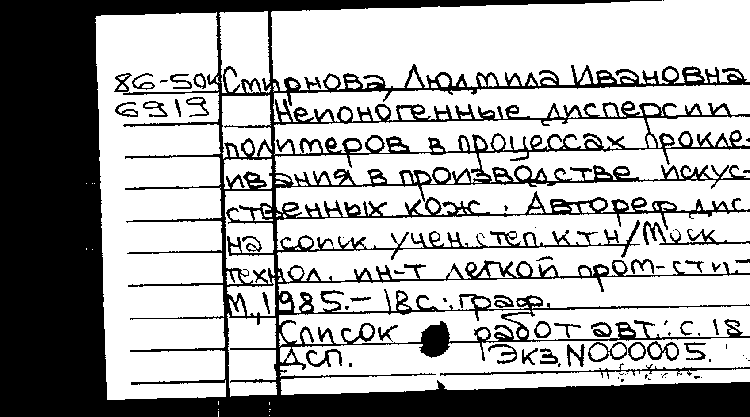 86-50к Смирнова, Людмила Ивановна
6919 Неионогенные дисперсии
полимеров в процессах прокле-
ивания в производстве искус-
ственных кож. Автореф. дис.
на соиск. учен. степ. к.т.н/Моск.
технол. ин-т легкой пром-сти.-
М., 1985.- 18с.: граф.
Список работ авт.: с. 18
Дсп. Экз. N000005.